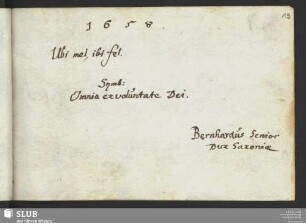 1658.
Ubi mel, ibi fel.
Symb:
Omnia ex voluntate Dei.
Bernhardus Senior
Dux Saxoniæ
SLUB